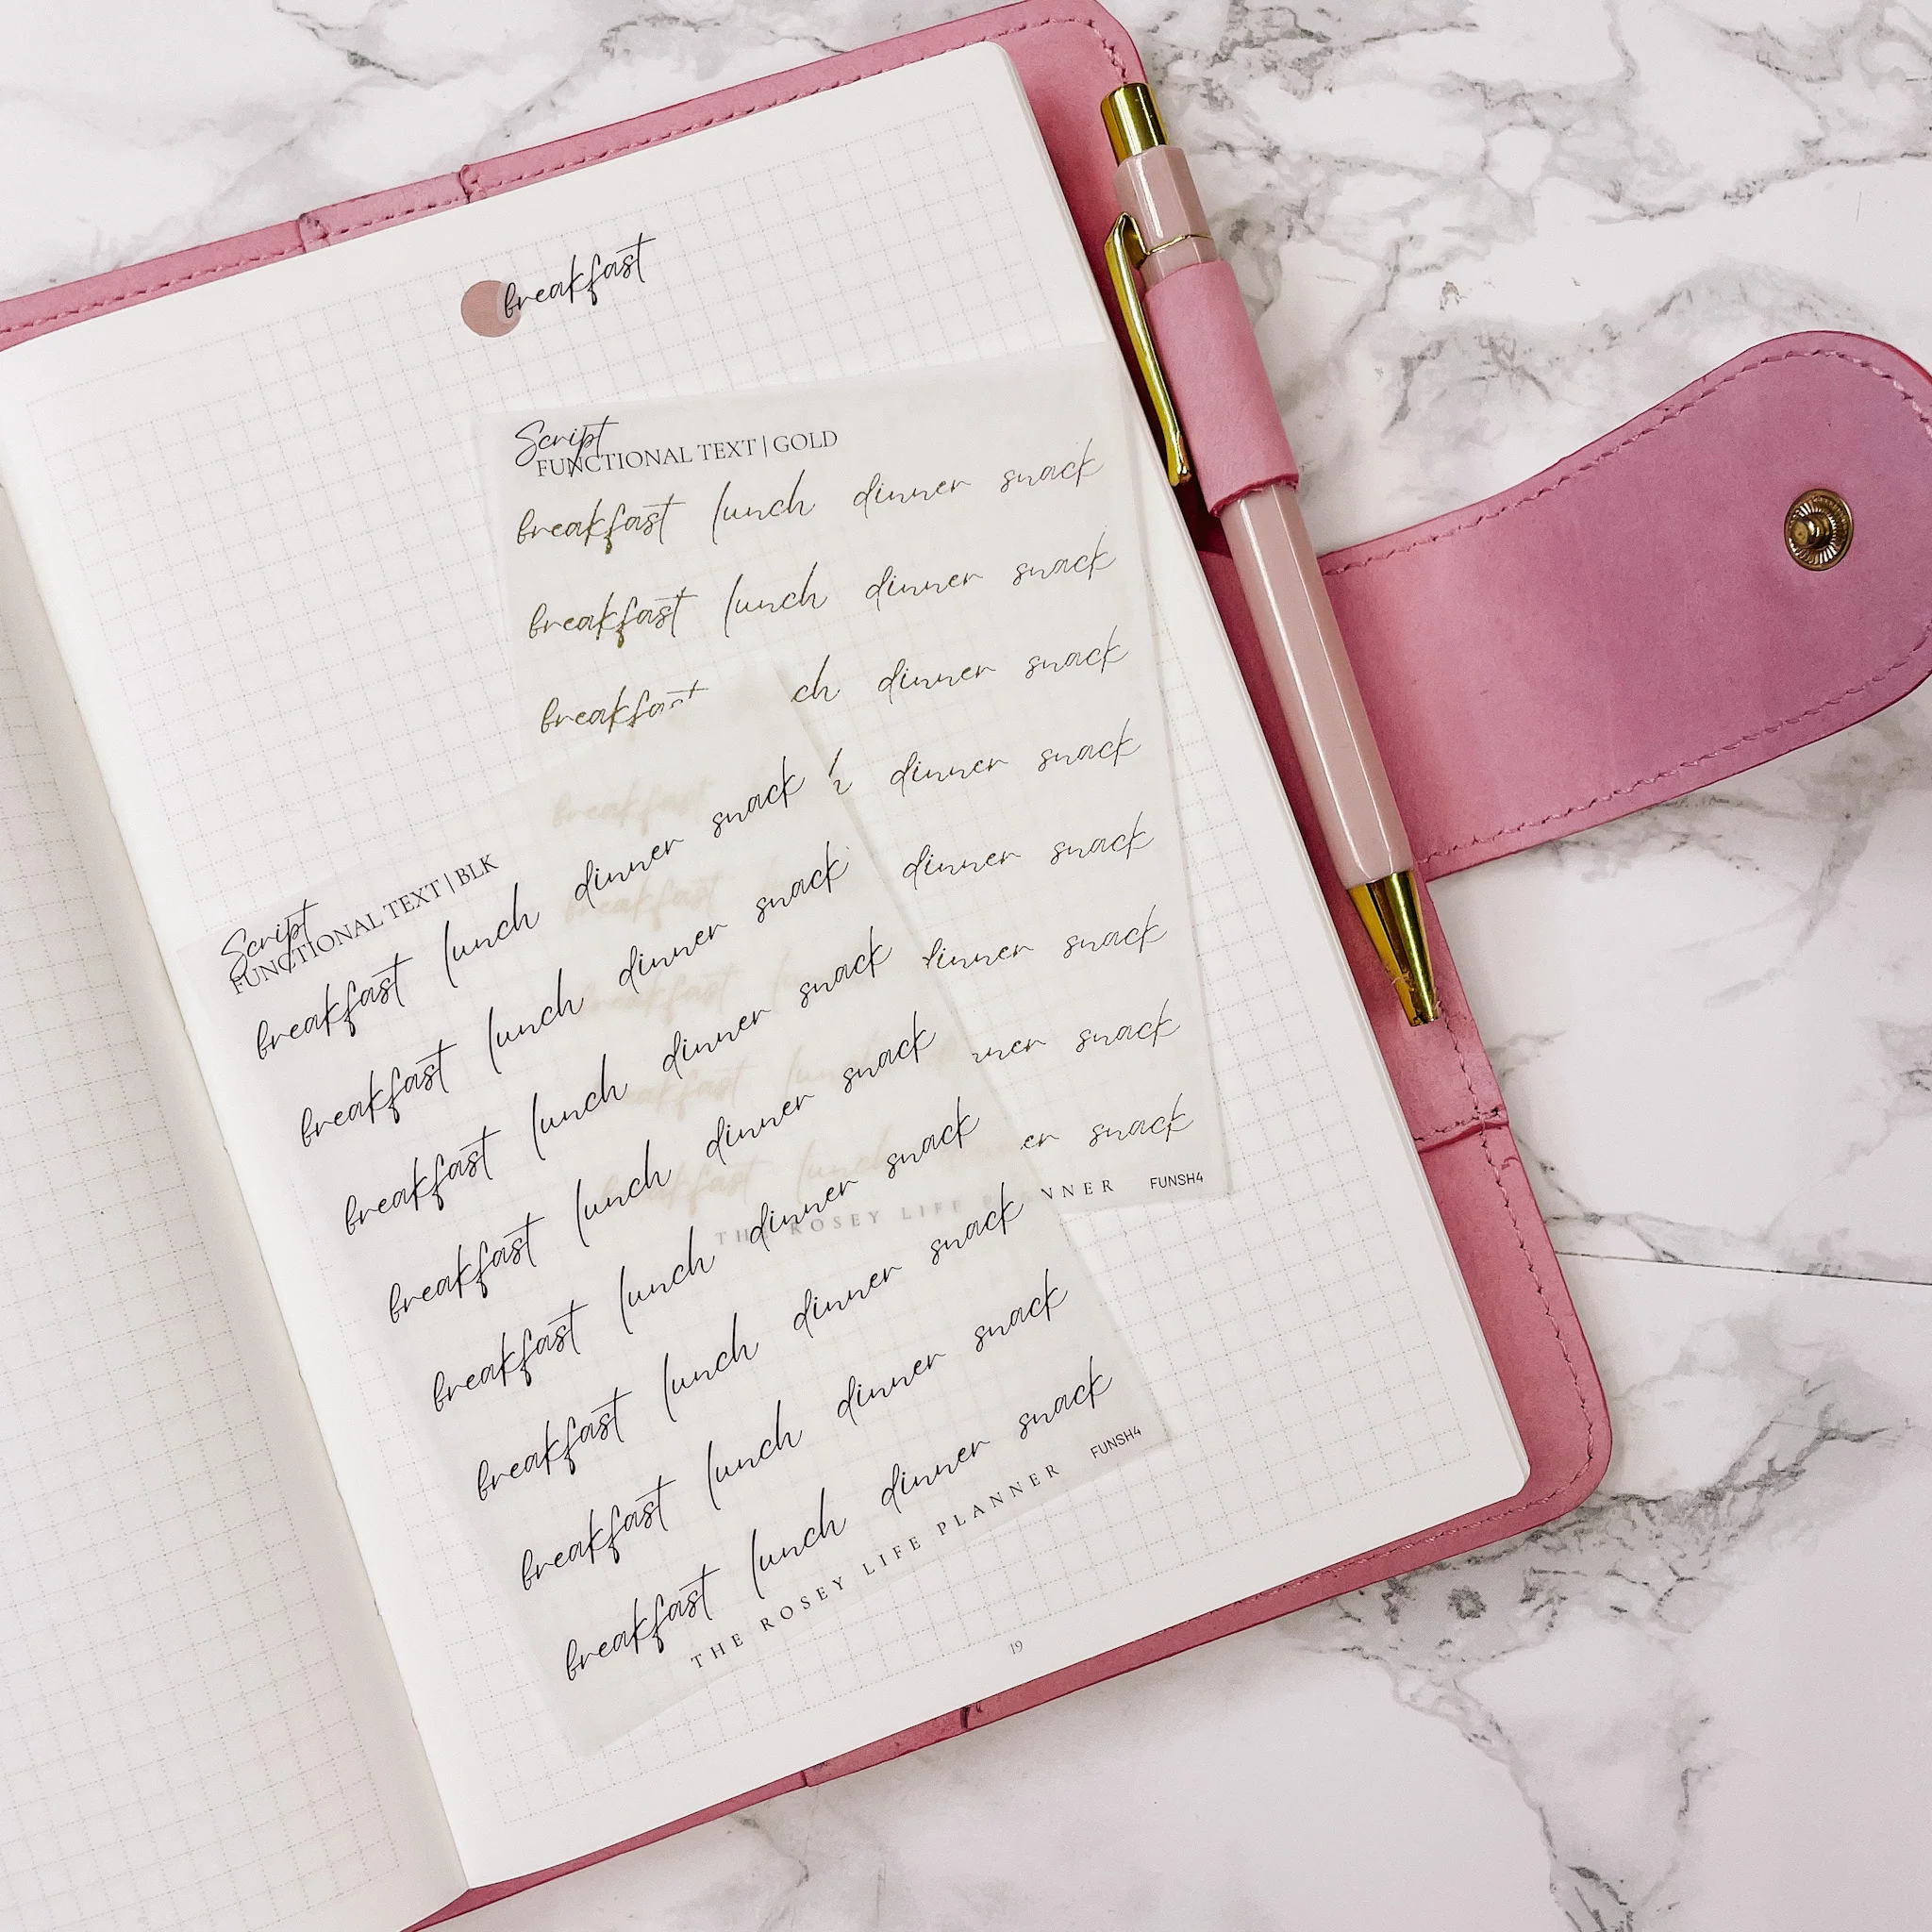 breakfast
Script
FUNCTIONAL TEXT | GOLD
breakfast lunch dinner snack
breakfast lunch dinner snack
breakfast ch dinner snack
breakfast dinner snack
breakfast dinner snack
breakfast dinner snack
breakfast snack
breakfast lunch er snack
THE ROSEY LIFE PLANNER FUNSH4
Script
FUNCTIONAL TEXT | BLK
breakfast lunch dinner snack
breakfast lunch dinner snack
breakfast lunch dinner snack
breakfast lunch dinner snack
breakfast lunch dinner snack
breakfast lunch dinner snack
breakfast lunch dinner snack
breakfast lunch dinner snack
THE ROSEY LIFE PLANNER FUNSH4
19